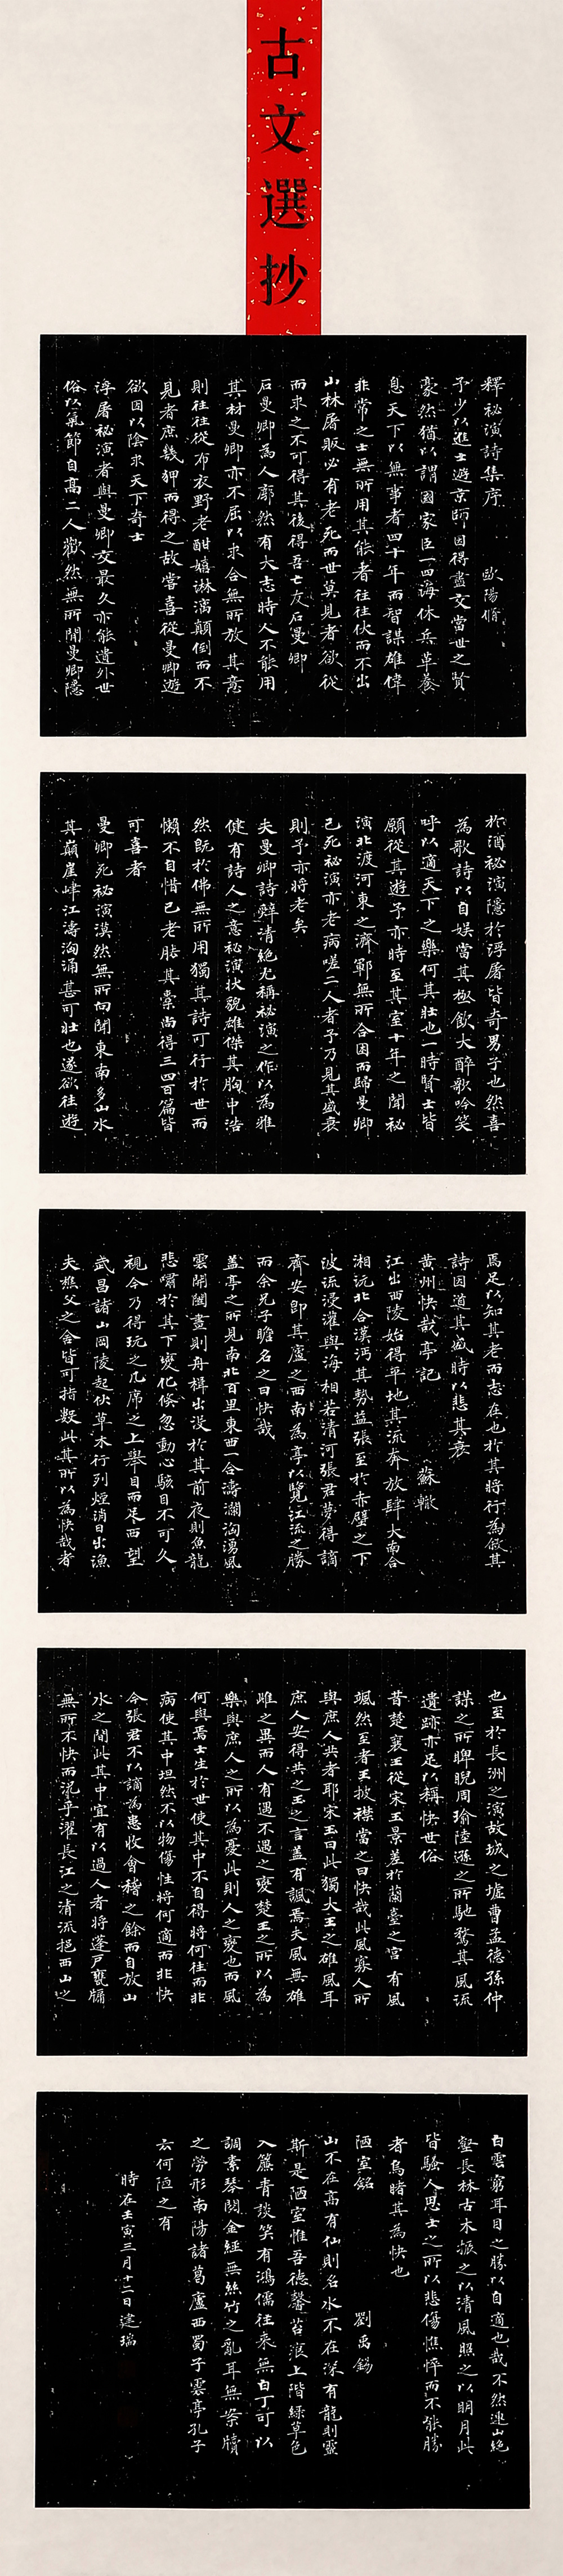 古文選抄
釋祕演詩集序　歐陽脩
予少以進士遊京師因得盡交當世之賢
豪然猶以謂國家臣一四海休兵革養
息天下以無事者四十年而智謀雄偉
非常之士無所用其能者往往伏而不出
山林屠販必有老死而世莫見者欲從
而求之不可得其後得吾亡友石曼卿
石曼卿為人廓然有大志時人不能用
其材曼卿亦不屈以求合無所放其意
則往往從布衣野老酣嬉淋漓顛倒而不
見者庶幾狎而得之故嘗喜從曼卿遊
欲因以陰求天下奇士
浮屠祕演者與曼卿交最久亦能遺外世
俗以氣節自高二人歡然無所間曼卿隱
於酒祕演隱於浮屠皆奇男子也然喜
為歌詩以自娛當其極飲大醉歌吟笑
呼以適天下之樂何其壯也一時賢士皆
願從其遊予亦時至其室十年之間祕
演北渡河東之濟鄆無所合困而歸曼卿
已死祕演亦老病嗟二人者予乃見其盛衰
則予亦將老矣
夫曼卿詩辭清絕尤稱祕演之作以為雅
健有詩人之意祕演狀貌雄傑其胸中浩
然既於佛無所用獨其詩可行於世而
懶不自惜已老胠其橐尚得三四百篇皆
可喜者
曼卿死祕演漠然無所向聞東南多山水
其巔崖崒江濤洶涌甚可壯也遂欲往遊
焉足以知其老而志在也於其將行為敘其
詩因道其盛時以悲其衰
黃州快哉亭記　蘇轍
江出西陵始得平地其流奔放肆大南合
湘沅北合漢沔其勢益張至於赤壁之下
波流浸灌與海相若清河張君夢得謫
齊安即其廬之西南為亭以覽江流之勝
而余兄子瞻名之曰快哉
蓋亭之所見南北百里東西一合濤瀾洶湧風
雲開闔晝則舟楫出没於其前夜則魚龍
悲嘯於其下變化倏忽動心駭目不可久
視今乃得玩之几席之上舉目而足西望
武昌諸山岡陵起伏草木行列煙消日出漁
夫樵父之舍皆可指數此其所以為快哉者
也至於長洲之濱故城之墟曹孟德孫仲
謀之所睥睨周瑜陸遜之所馳騖其風流
遺跡亦足以稱快世俗
昔楚襄王從宋玉景差於蘭臺之宮有風
颯然至者王披襟當之曰快哉此風寡人所
與庶人共者耶宋玉曰此獨大王之雄風耳
庶人安得共之玉之言蓋有諷焉夫風無雄
雌之異而人有遇不遇之變楚王之所以為
樂與庶人之所以為憂此則人之變也而風
何與焉士生於世使其中不自得將何往而非
病使其中坦然不以物傷性將何適而非快
今張君不以謫為患收會稽之餘而自放山
水之間此其中宜有以過人者將蓬戶甕牖
無所不快而況乎濯長江之清流挹西山之
白雲窮耳目之勝以自適也哉不然連山絕
壑長林古木振之以清風照之以明月此
皆騷人思士之所以悲傷憔悴而不能勝
者烏睹其為快也
陋室銘　劉禹錫
山不在高有仙則名水不在深有龍則靈
斯是陋室惟吾德馨苔痕上階綠草色
入簾青談笑有鴻儒往來無白丁可以
調素琴閱金經無絲竹之亂耳無案牘
之勞形南陽諸葛廬西蜀子雲亭孔子
云何陋之有
時在壬寅三月十二日建瑞